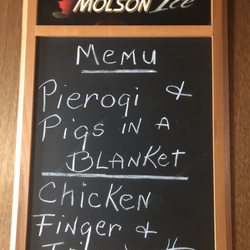 MOLSON Ice
MEMU
PIEROGI &
PIGS IN A
BLANKET
CHICKEN
FINGER &